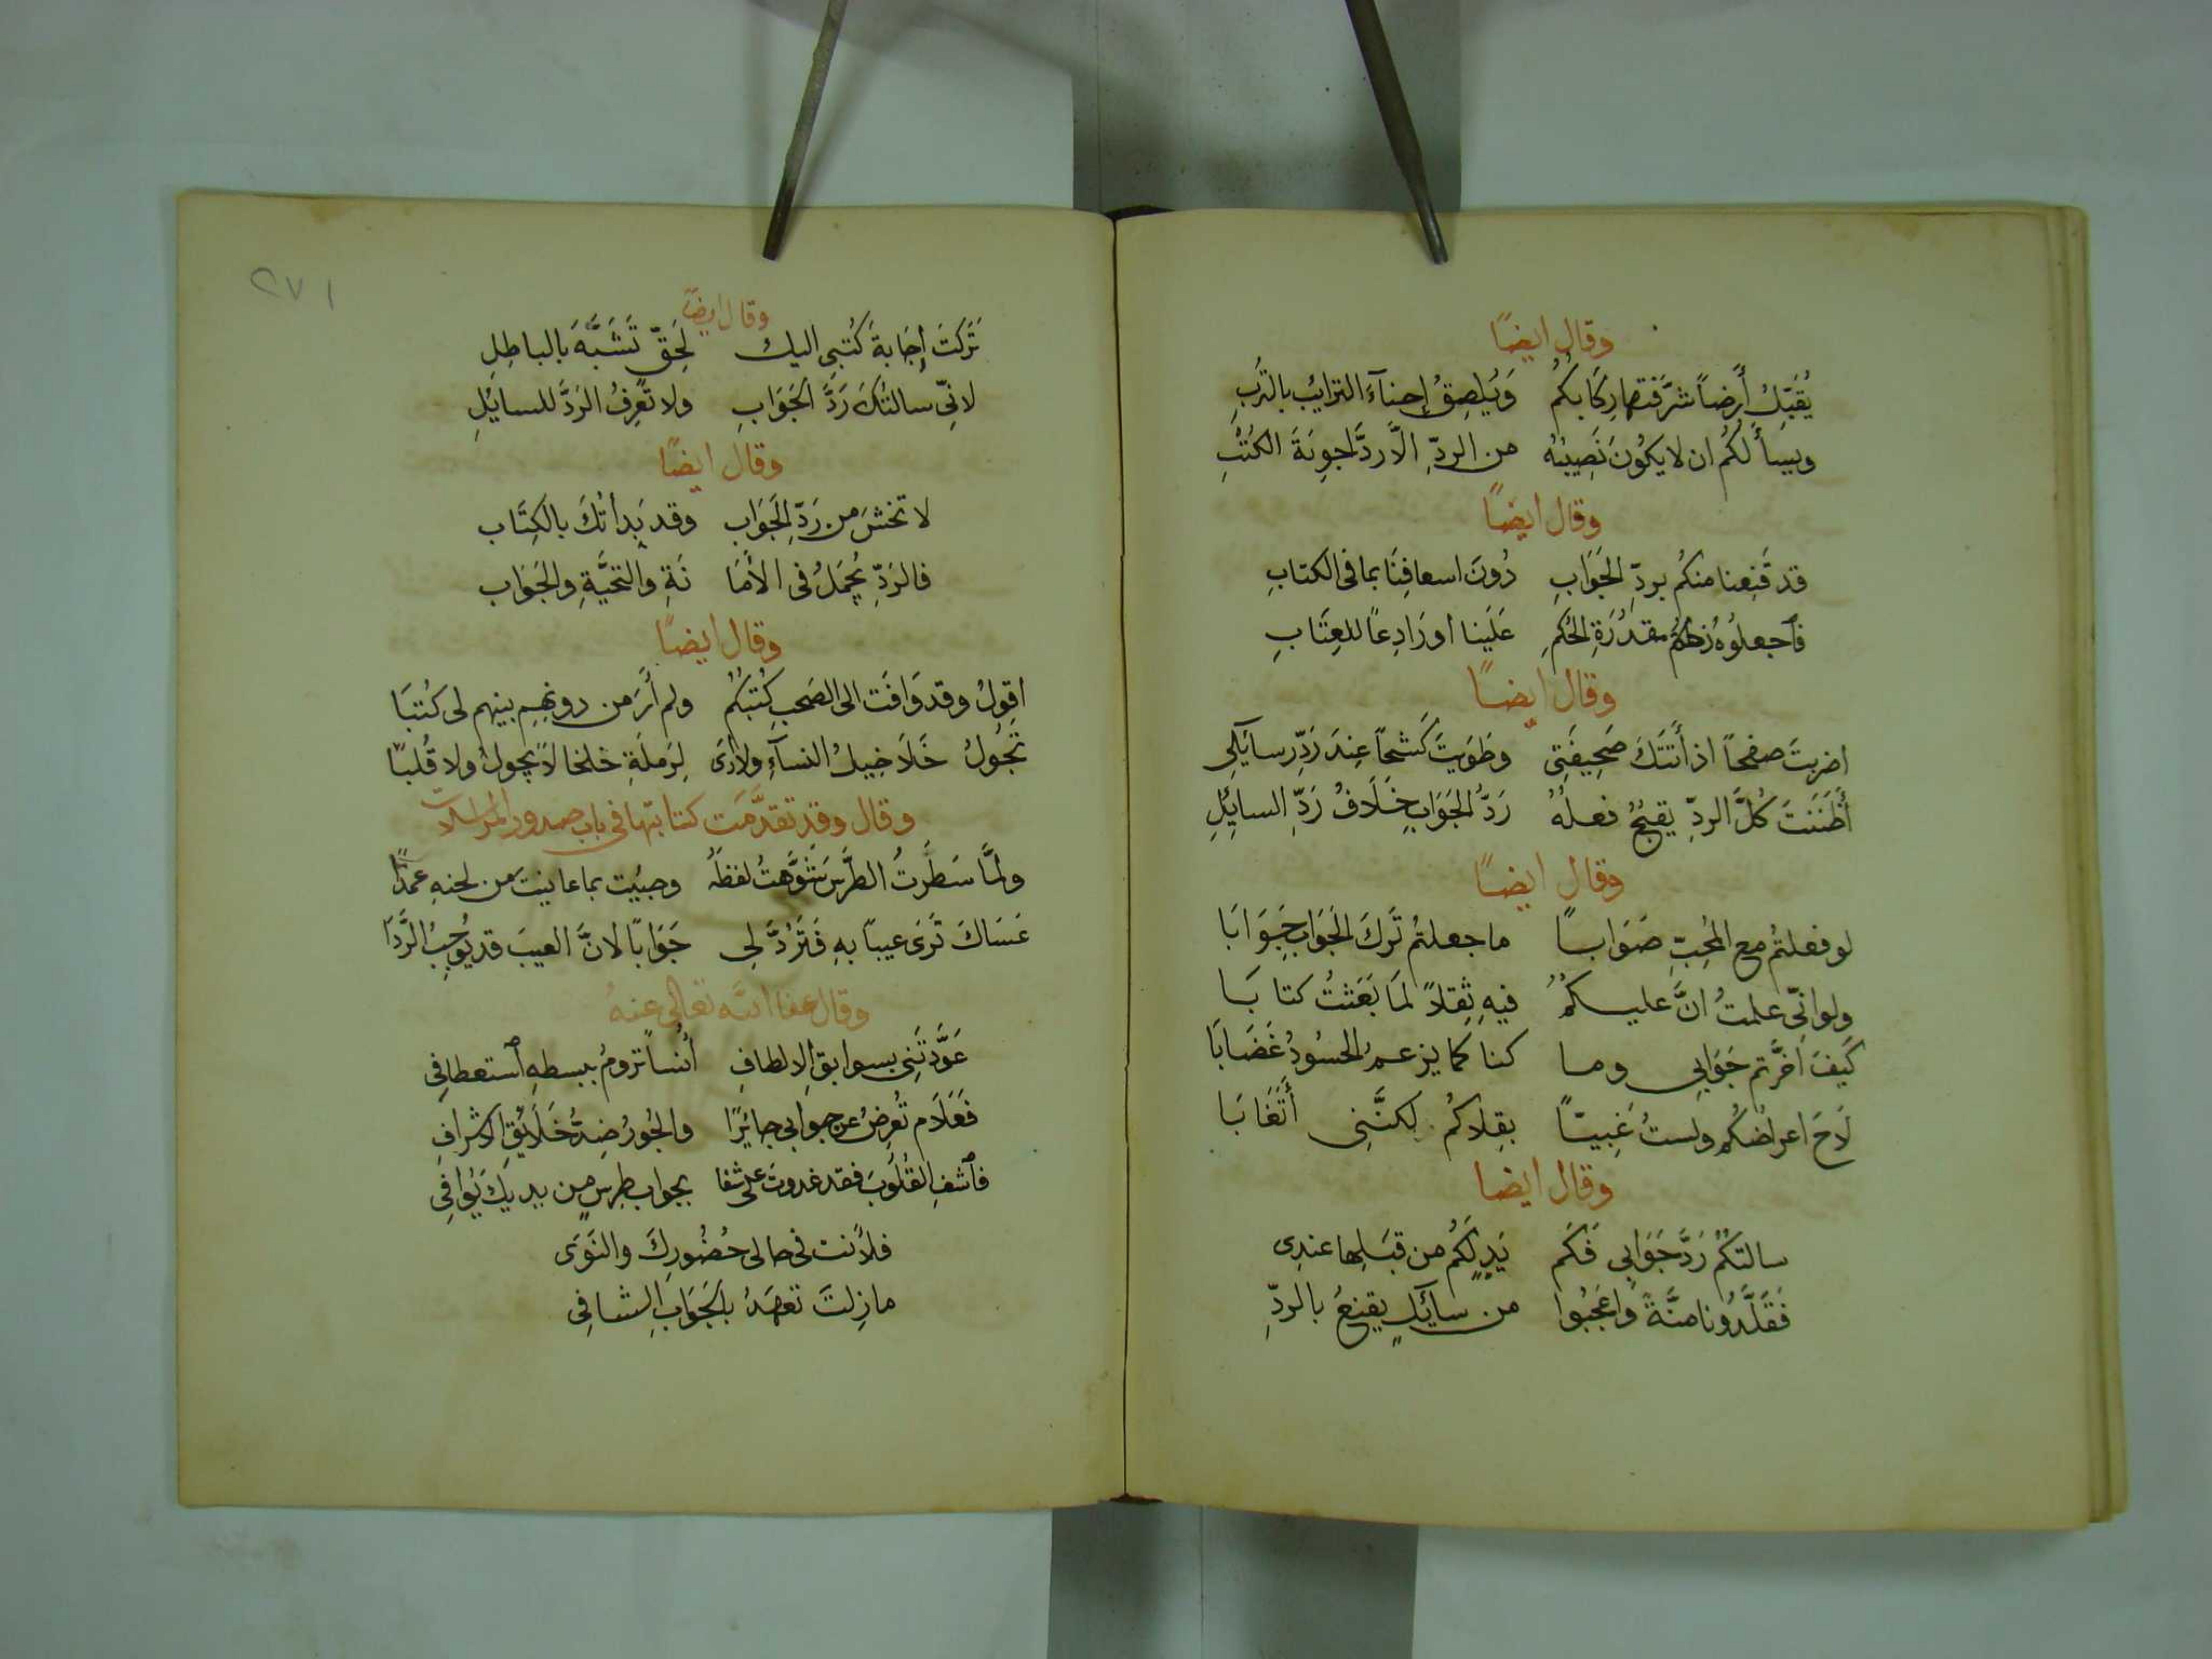 وقال ايضًا
يُقَبِّلُ أَرضاً شرَّفَتها رِكَابكُم وَيُلصِقُ إحنآءَ الترايُب بالتُربِ
ويسأَلُكُم ان لا يكُونَ نَصِيبُهُ من الردِّ الَّا ردَّ اجوِبَةَ الكُتْبِ
وقال ايضًا
قد قَنِعنا منكُم بردِّ الجَوَابِ دُونَ اسعافِنَا بما فى الكتابِ
فٱجعلوُهُ مقدُرَةِ الحُكمِ عَلَينا او رَادِعاً للعِتَابِ
وقال ايضًا
اضربتَ صفحاً اذ أَتَتكَ صَحِيفَتِى وطَوَيتَ كَشحاً عِندَ رَدِّ رسايَلِى
أَظَنَنتَ كُلَّ الردِّ يقبَحُ فعلُهُ رَدُّ الجَوَابِ خِلَافُ رَدِّ السايِلِ
وقال ايضًا
لو فعلتُم مع المُحِبِّ صَوَاباً ما جعلتُم تَركَ الجَوَابِ جَوَابَا
ولو انّى علمتُ انَّ عليكُمُ فيهِ ثِقلاً لمَا بَعَثتُ كتابَا
كَيفَ اخَّرتم جَوَابي وما كنا كما يزعمُ الحسُودُ غَضَابَا
لَاحَ اعراضُكُم ولستُ غَبِيّاً بقِلاكُم لكنَّنِى أَتَغَابَا
وقال ايضا
سالتكُمُ رَدَّ جَوَابي فَكَم يَدٍ لَكُم من قبَلِها عندِى
فَقَلِّدُونا منَّةً وَاعجَبُوا من سايَلٍ يقنعُ بالردِّ
٢٧١
وقال ايضًا
تَرَكتَ إجَابةَ كُتبي اليك لِحَقّ تَشَبَّهَ بالباطِلِ
لانِّى سالتُكَ رَدَّ الجَوَابِ ولا تَعرِفُ الرَدَّ للسايِلِ
وقال ايضًا
لا تخشَ من رَدِّ الجَوَاب وقد بَدأتُكَ بالكِتَاب
فالرَدِّ يُجمَلُ فى الأَمَا نَةِ والتحيَّةِ والجَوَاب
وقال ايضًا
اقولُ وقد وَافَت الى الصَحبِ كُتبُكُم ولم أَرَ من دونهِم بينهم لى كُتبَا
تجُولُ خَلَاخِيلُ النسآءِ ولا أرَى لِرَملَةِ خلخالاً يجول ولا قُلبًا
وقال وقد تقدَّمَت كتابتها فى باب صدور المراسلات
ولمَّا سَطَرتُ الطرَّسَ شَوَّهتُ لفظَهُ وجئت بما عاينتَ من لحنهِ عمدًا
عَسَاكَ تَرَى عيباً بهِ فَتَرُدَّ لي جَوَابًا لانَّ العيبَ قد يُوجِبُ الرَّدَا
وقال عفا الله تعالى عنهُ
عَوَّدتَنِى بسوابقِ الالطافِ أُنُساً ترومُ ببسطهِ ٱستعطافِى
فَعَلَام تُعرِضُ عن جوابى جائِرًا والجُورُ ضِدُّ خَلَايُقِ الاشرافِ
فٱشفِ القُلُوبَ فقد غدوتَ على شفا بجواب طِرسٍ من يديكَ يُوَافِى
فلأنت فى حالى حُضُورِكَ والنَوَى
ما زِلتَ تعهَدُ بالجَوَابِ الشافِى